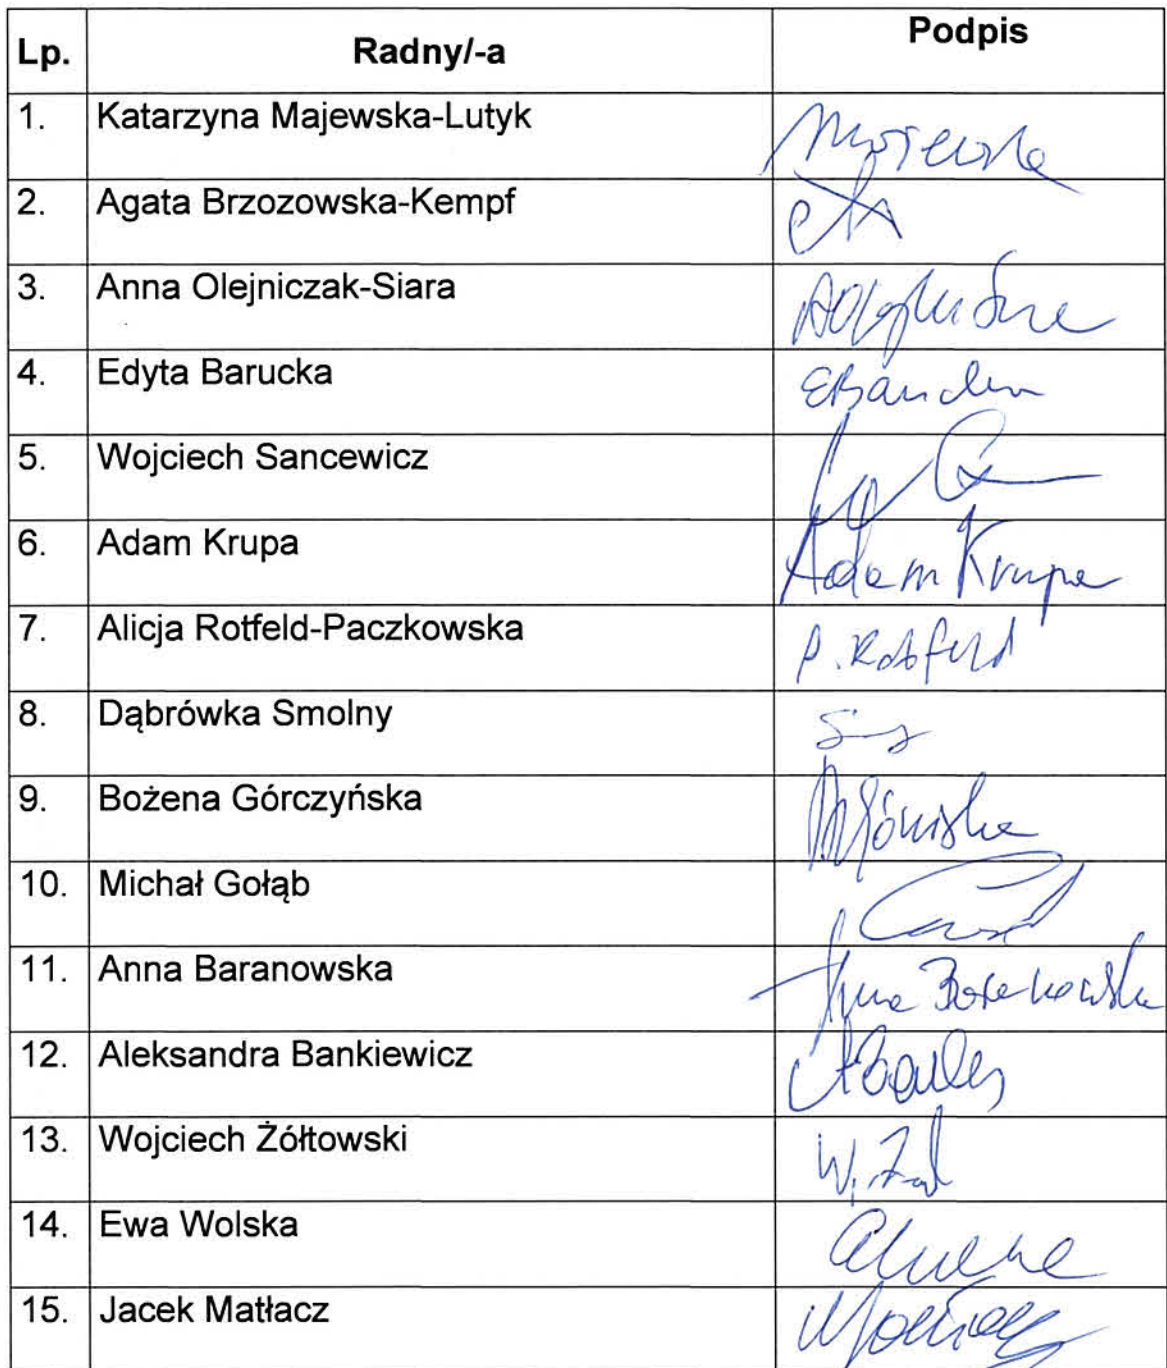 Lp. Radny/-a Podpis
1. Katarzyna Majewska-Lutyk Majewska
2. Agata Brzozowska-Kempf
3. Anna Olejniczak-Siara
4. Edyta Barucka
5. Wojciech Sancewicz
6. Adam Krupa Adam Krupa
7. Alicja Rotfeld-Paczkowska A. Rotfeld
8. Dąbrówka Smolny
9. Bożena Górczyńska
10. Michał Gołąb
11. Anna Baranowska Anna Baranowska
12. Aleksandra Bankiewicz
13. Wojciech Żółtowski
14. Ewa Wolska
15. Jacek Matłacz